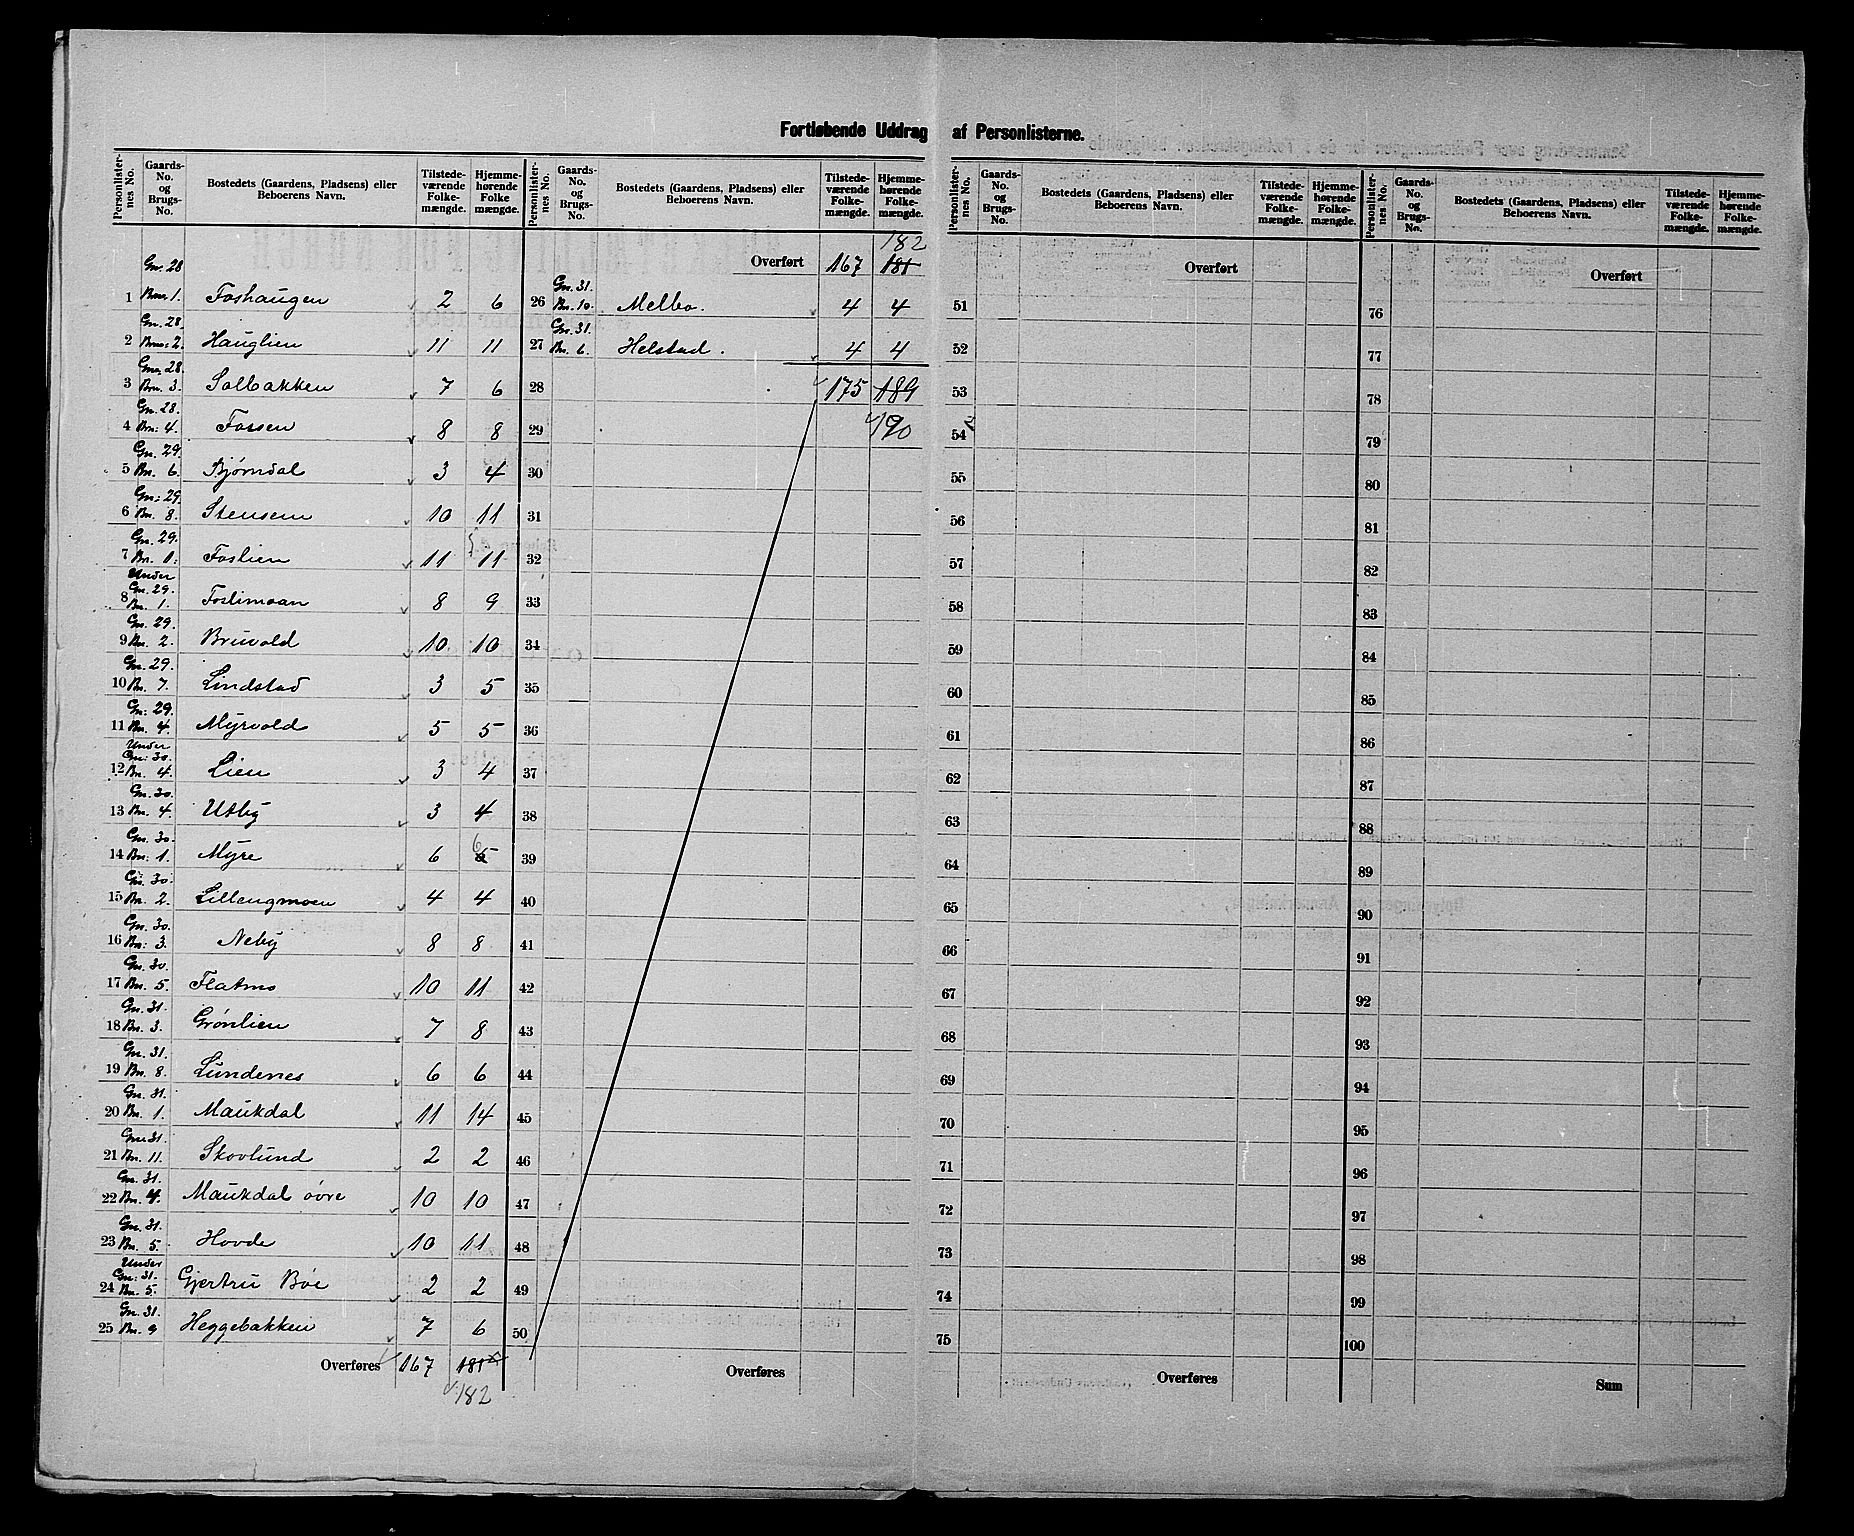 Fortløbende Uddrag af Personlisterne.
Personlister- nes No. | Gaards- No. og Brugs- No. | Bostedets (Gaardens, Pladsens) eller Beboerens Navn. | Tilstede- værende Folke- mængde. | Hjemme- hørende Folke mængde.
1 | Gn. 28 Bn. 1. | Foshaugen | 2 | 6
2 | Gn. 28. Bn: 2. | Hauglien | 11 | 11
3 | Gn. 28. Bn. 3. | Solbakken | 7 | 6
4 | Gn. 28. Bn: 4. | Fossen | 8 | 8
5 | Gn. 29. Bn. 6. | Bjørndal | 3 | 4
6 | Gn: 29. Bn. 8. | Stensem | 10 | 11
7 | Gn. 29. Bn. 1: | Foslien | 11 | 11
8 | Under Gn. 29. Bn. 1. | Foslimoan | 8 | 9
9 | Gn. 29. Bn. 2. | Bruvold | 10 | 10
10 | Gn. 29. Bn. 7. | Lindstad | 3 | 5
11 | Gn: 29. Bn. 4. | Myrvold | 5 | 5
12 | Under Gn: 30. Bn. 4. | Lien | 3 | 4
13 | Gn. 30. Bn. 4. | Utby | 3 | 4
14 | Gn. 30. Bn: 1. | Myre | 6 | 6
15 | Gn. 30. Bn. 2. | Lillengmoen | 4 | 4
16 | Gn. 30. Bn: 3. | Neby | 8 | 8
17 | Gn. 30. Bn. 5. | Flatmo | 10 | 11
18 | Gn. 31. Bn. 3. | Grønlien | 7 | 8
19 | Gn. 31. Bn. 8. | Lundenes | 6 | 6
20 | Gn. 31. Bn. 1. | Maukdal | 11 | 14
21 | Gn. 31. Bn. 11. | Skovlund | 2 | 2
22 | Gn. 31. Bn. 4. | Maukdal øvre | 10 | 10
23 | Gn. 31. Bn. 5. | Hovde | 10 | 11
24 | Under Gn: 31. Bn. 5. | Gjertru Bøe | 2 | 2
25 | Gn. 31. Bn. 9 | Heggebakken | 7 | 6
Overføres | 167 | 181
182
Personlister- nes No. | Gaards- No. og Brugs- No. | Bostedets (Gaardens, Pladsens) eller Beboerens Navn. | Tilstede- værende Folke- mængde. | Hjemme- hørende Folke- mængde.
182
Overført | 167 | 181
26 | Gn. 31. Bn. 10. | Melbo. | 4 | 4
27 | Gn. 31. Bn. 6. | Helstad. | 4 | 4
28 | 175 | 189
29 | 190
30
31
32
33
34
35
36
37
38
39
40
41
42
43
44
45
46
47
48
49
50
Overføres
Personlister- nes No. | Gaards- No. og Brugs- No. | Bostedets (Gaardens, Pladsens) eller Beboerens Navn. | Tilstede- værende Folke- mængde. | Hjemme- hørende Folke- mængde.
Overført
51
52
53
54
55
56
57
58
59
60
61
62
63
64
65
66
67
68
69
70
71
72
73
74
75
Overføres
Personlister- nes No. | Gaards- No. og Brugs- No. | Bostedets (Gaardens, Pladsens) eller Beboerens Navn. | Tilstede- værende Folke- mængde. | Hjemme- hørende Folke- mængde.
Overført
76
77
78
79
80
81
82
83
84
85
86
87
88
89
90
91
92
93
94
95
96
97
98
99
100
Sum